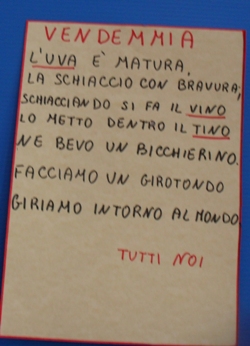 VENDEMMIA
L'UVA È MATURA,
LA SCHIACCIO CON BRAVURA;
SCHIACCIANDO SI FA IL VINO
LO METTO DENTRO IL TINO
NE BEVO UN BICCHIERINO.
FACCIAMO UN GIROTONDO
GIRIAMO INTORNO AL MONDO.
TUTTI NOI